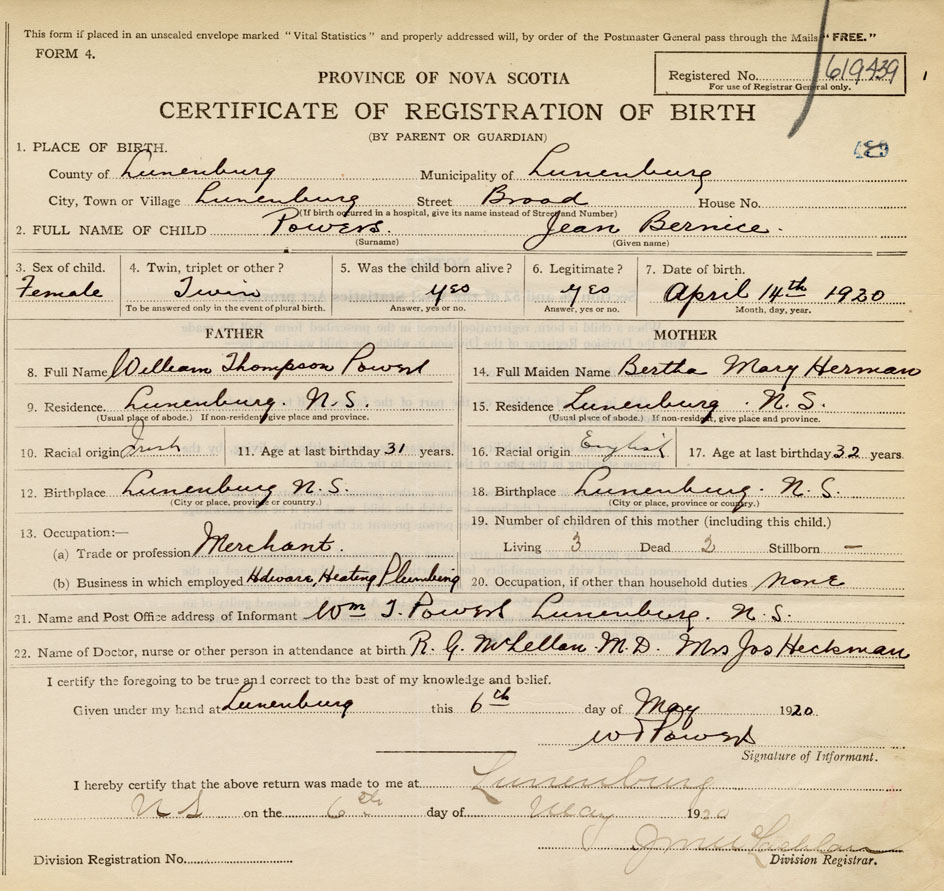 This form if placed in an unsealed envelope marked "Vital Statistics" and properly addressed will, by order of the Postmaster General pass through the Mails "FREE."
FORM 4.
PROVINCE OF NOVA SCOTIA
Registered No. 619439
For use of Registrar General only.
CERTIFICATE OF REGISTRATION OF BIRTH
(BY PARENT OR GUARDIAN)
1. PLACE OF BIRTH.
County of Lunenburg Municipality of Lunenburg
City, Town or Village Lunenburg Street Broad House No.
(If birth occurred in a hospital, give its name instead of Street and Number)
2. FULL NAME OF CHILD Powers. Jean Bernice.
(Surname) (Given name)
3. Sex of child. 4. Twin, triplet or other? 5. Was the child born alive? 6. Legitimate? 7. Date of birth.
Female Twin yes yes April 14th 1920
To be answered only in the event of plural birth. Answer, yes or no. Answer, yes or no. Month, day, year.
FATHER MOTHER
8. Full Name William Thompson Powers 14. Full Maiden Name Bertha Mary Herman
9. Residence. Lunenburg. N.S. 15. Residence Lunenburg. N.S.
(Usual place of abode.) If non-resident, give place and province. (Usual place of abode.) If non-resident, give place and province.
10. Racial origin Irish 11. Age at last birthday 31 years. 16. Racial origin English 17. Age at last birthday 32 years.
12. Birthplace Lunenburg N.S. 18. Birthplace Lunenburg. N.S.
(City or place, province or country.) (City or place, province or country.)
13. Occupation:— 19. Number of children of this mother (including this child.)
(a) Trade or profession Merchant. Living 3 Dead 2 Stillborn —
(b) Business in which employed Hdware, Heating, Plumbing 20. Occupation, if other than household duties none
21. Name and Post Office address of Informant Wm T. Powers Lunenburg. N.S.
22. Name of Doctor, nurse or other person in attendance at birth R. G. McLellan M.D. Mrs Jos Heckman
I certify the foregoing to be true and correct to the best of my knowledge and belief.
Given under my hand at Lunenburg this 6th day of May 1920.
W T Powers
Signature of Informant.
I hereby certify that the above return was made to me at Lunenburg
N S on the 6th day of May 1920
Division Registration No. Division Registrar.